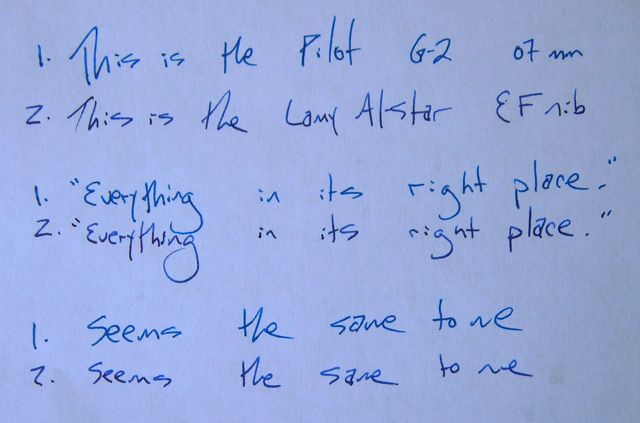 1. This is the Pilot G-2 07 mm
2. This is the Lamy Al-star EF nib
1. "Everything in its right place."
2. "Everything in its right place."
1. Seems the same to me
2. Seems the same to me